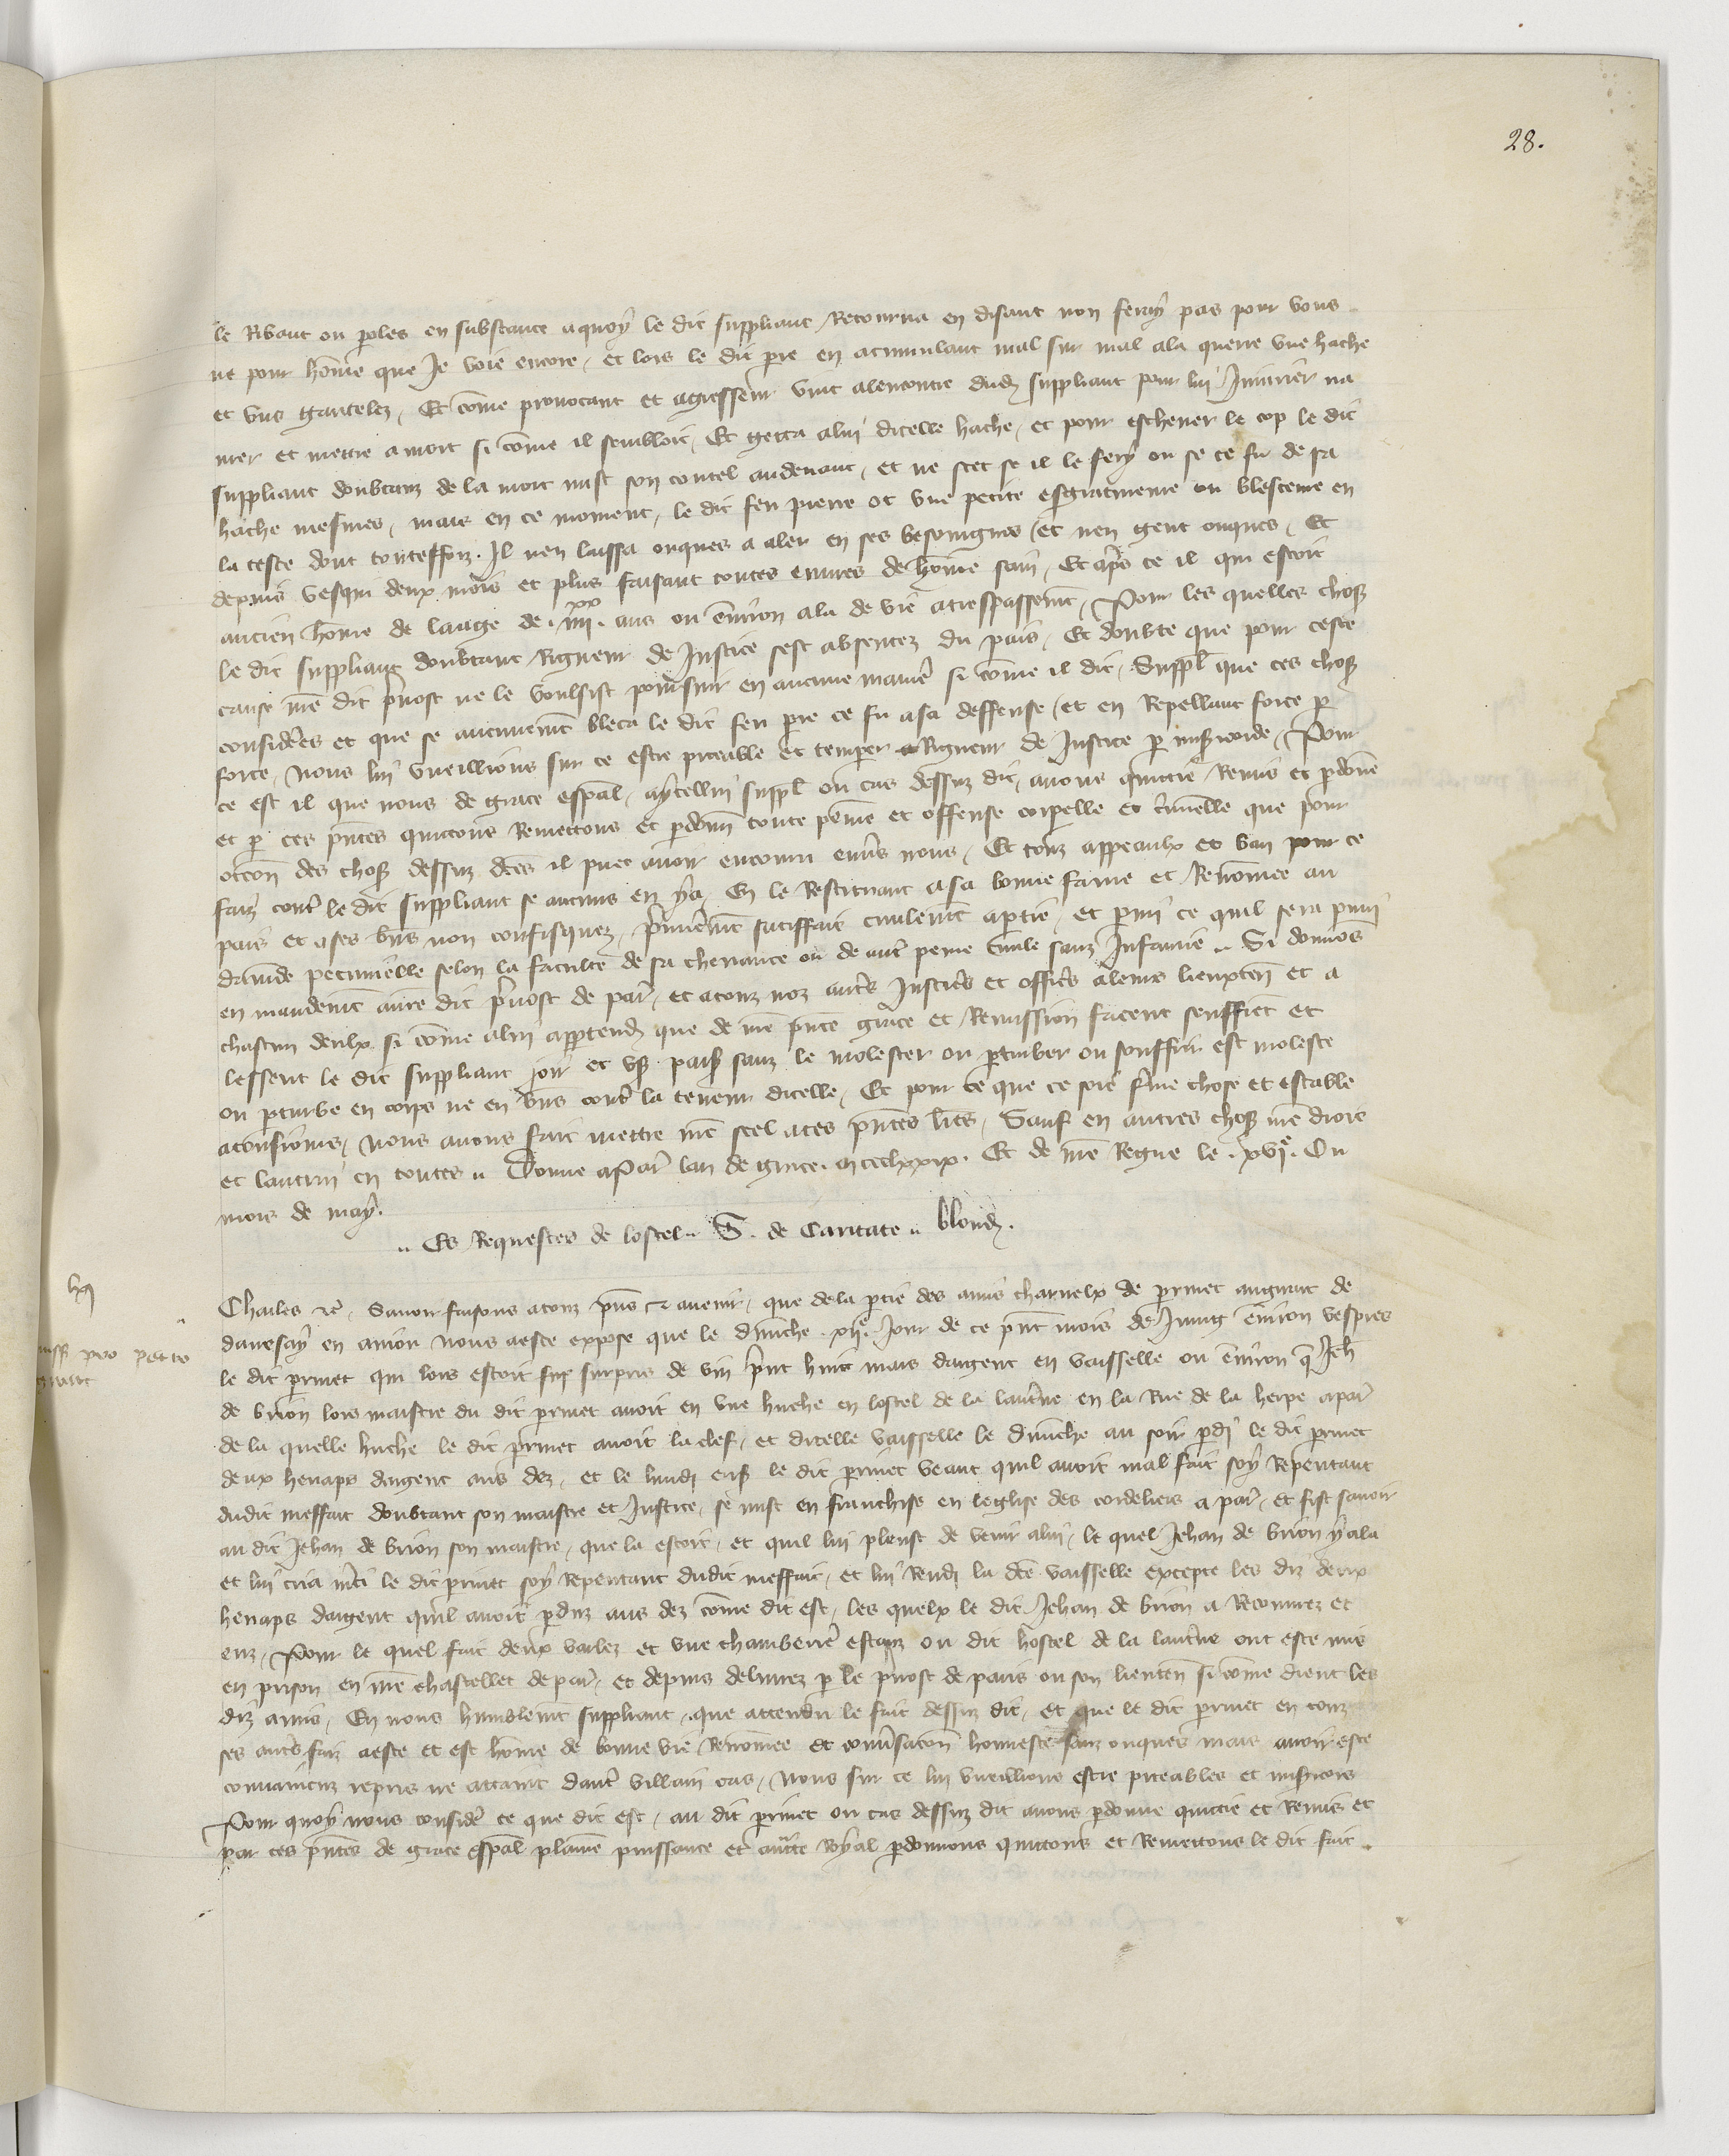 28.
le Ribaut ou paroles en substance aquoy le dit suppliant Retourna en disant non feray pas pour vous
ne pour hōme que Je voie encore / et lors le dit pere en acumulant mal sur mal ala querre une hache
et uns gantelez / Et cōme provocant et agresseur vint alencontre dud suppliant pour lui Iniurier na
vrer et mettre a mort si cōme il sembloit / Et getta alui dicelle hache / et pour eschever le cop le dit
suppliant doubtanz de la mort mist son coutel audevant / et ne scet se il le fery ou se ce fu de sa
hache mesmes / mais en ce moment / le dit feu pierre ot une petite esgratineure ou blesceure en
la teste dont touteffoiz . Il nen laissa onques a aler en ses besoingnes / et nen geut onques / Et
depuis vesqui deux mois et plus faisant toutes euvres de hōme sain / Et aprs ce il qui estoit
ancien hōme de laage de . iiii xx . ans ou ēviron ala de vie a trespassemt / Pour les quelles chos
le dit suppliant doubtant Rigueur de Justice sest absentez du pais / Et doubte que pour ceste
cause nre dit pvost ne le voulsist poursuir en aucune manie si cōme il dit / Suppl que ces chos
considées et que se aucunemt bleca le dit feu pere ce fu a sa deffense / et en Repellant force p
force / nous lui vueillions sur ce estre piteable et temper Rigueur de Justice p misicorde / Pour
ce est il que nous de grace espal / aycellui suppl ou cas dessuz dit / avons quittie Remis et pdonē
et p ces pntes quittons Remettons et pdonn toute peine et offense corpelle et cminelle que pour
occon des chos dessuz dces il puet avoir encouru envs nous / Et touz appeaulx et ban pour ce
faiz cont le dit suppliant se aucuns en ya / En le Restituant a sa bonne fame et Renōmee au
pais et a ses bns non confisquez / pmieremt satiffait civilemt a ptie / et pmi ce quil sera puni
damde pecunielle selon la faculte de sa chevance ou de aut peine civile sanz Infamie . Si donnōs
en mandemt a nre dit pvost de par / et a touz noz auts Justics et offics a leurs lieuxten et a
chascun deulx si cōme alui apptendr que de nre pnte grace et Remission facent seuffrēt et
lessent le dit suppliant joir et us paisi sanz le molester ou ptourber ou souffrir est moleste
ou pturbe en corps ne en bns cont la teneur dicelle / Et pour ce que ce soit fme chose et estable
a tousiours / nous avons fait mettre nre scel a ces pntes lres / Sauf en autres chos nre droit
et lautrui en toutes .. Donne a Par lan de grace . m ccc lxxix . Et de nre Regne le . xvi e . Ou
mois de may .
.. Es Requestes de lostel .. S . de Caritate .. blond .
Charles rc / Savoir faisons a touz pns et avenir / que de la ptie des amis charnelx de perrinet de
davesay en aniou nous a este expose que le dimche . xii e . jour de ce pnt mois de Juing ēviron vespres
le dit perrinet qui lors estoit surpris de vin prit huit mars dargent en vaisselle ou ēviron q Jeh
de brion lors maistre du dit perrinet avoit en une huche en lostel de la lanterne en la Rue de la herpe a par
de la quelle huche le dit perrinet avoit la clef / et dicelle vaisselle le dimche au soir pdi le dit perrinet
deux henaps dargent aus dez / et le lundi ens le dit perrinet veant quil avoit mal fait soy Repentant
dudit meffait doubtant son maistre et Justice / se mist en franchise en leglise des cordeliers a par / et fist savoir
au dit Jehan de brion son maistre / que la estoit / et quil lui pleust de venir alui / le quel Jehan de brion y ala
et lui cria mci le dit prinet soy Repentant dudit meffait / et lui Rendi la dce vaisselle excepte les diz deux
henaps dargent quil avoit pduz aus dez cōme dit est / les quelx le dit Jehan de brion a Recouvrez et
euz / Pour le quel fait deux vallez et une chamberie estanz ou dit hostel de la lanterne ont este mis
en prison en nre chastellet de par / et depuis delivrez p le pvost de paris ou son lieuten si cōme dient les
diz amis / En nous humblemt suppliant / que attendu le fait dessuz dit / et que le dit perrinet en touz
ses auts faiz a este et est hōme de bonne vie Renōmee et convsacon honneste sanz onques mais avoir este
convaincuz repris ne attaint daut villain cas / nous sur ce lui vueillions estre piteables et misicors
Pour quoy nous consider ce que dit est / au dit perrinet ou cas dessuz dit avons pdonne quittie et Remis et
par ces pntes de grace espal plaine puissance et auctte Royal pdonnons quittons et Remettons le dit fait